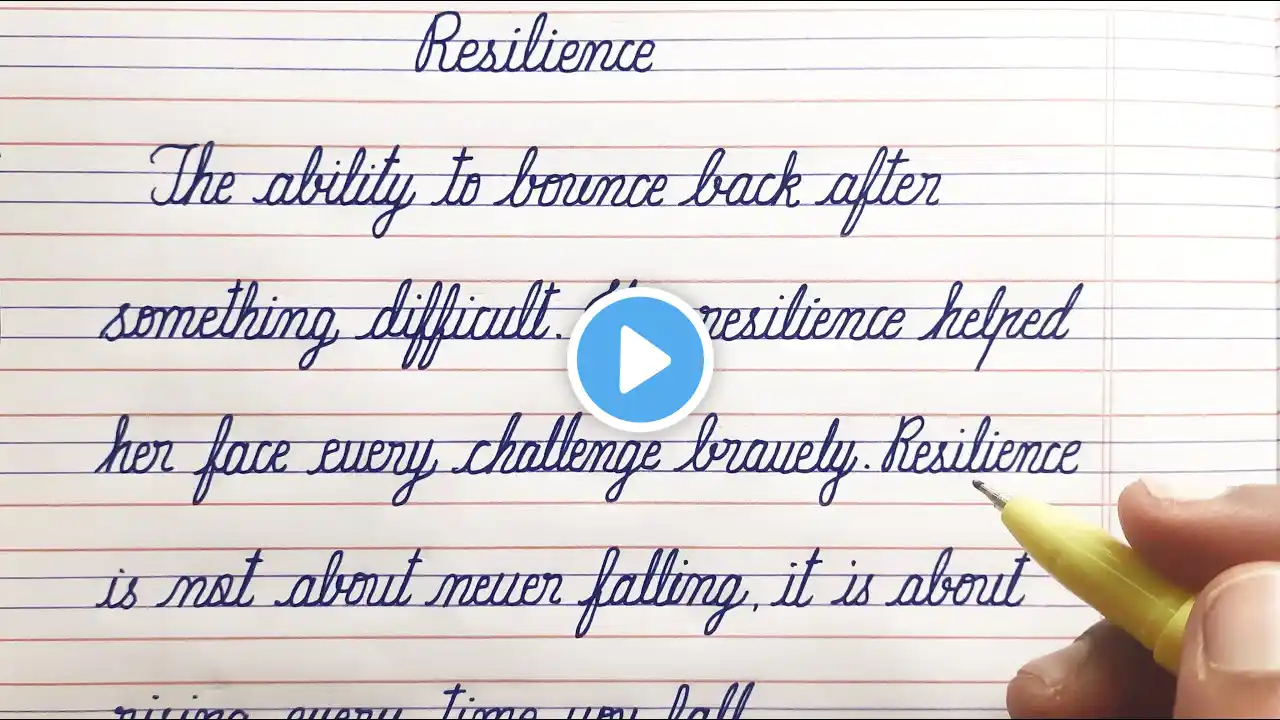 Resilience
The ability to bounce back after
something difficult. resilience helped
her face every challenge bravely. Resilience
is not about never falling, it is about
rising every time you fall